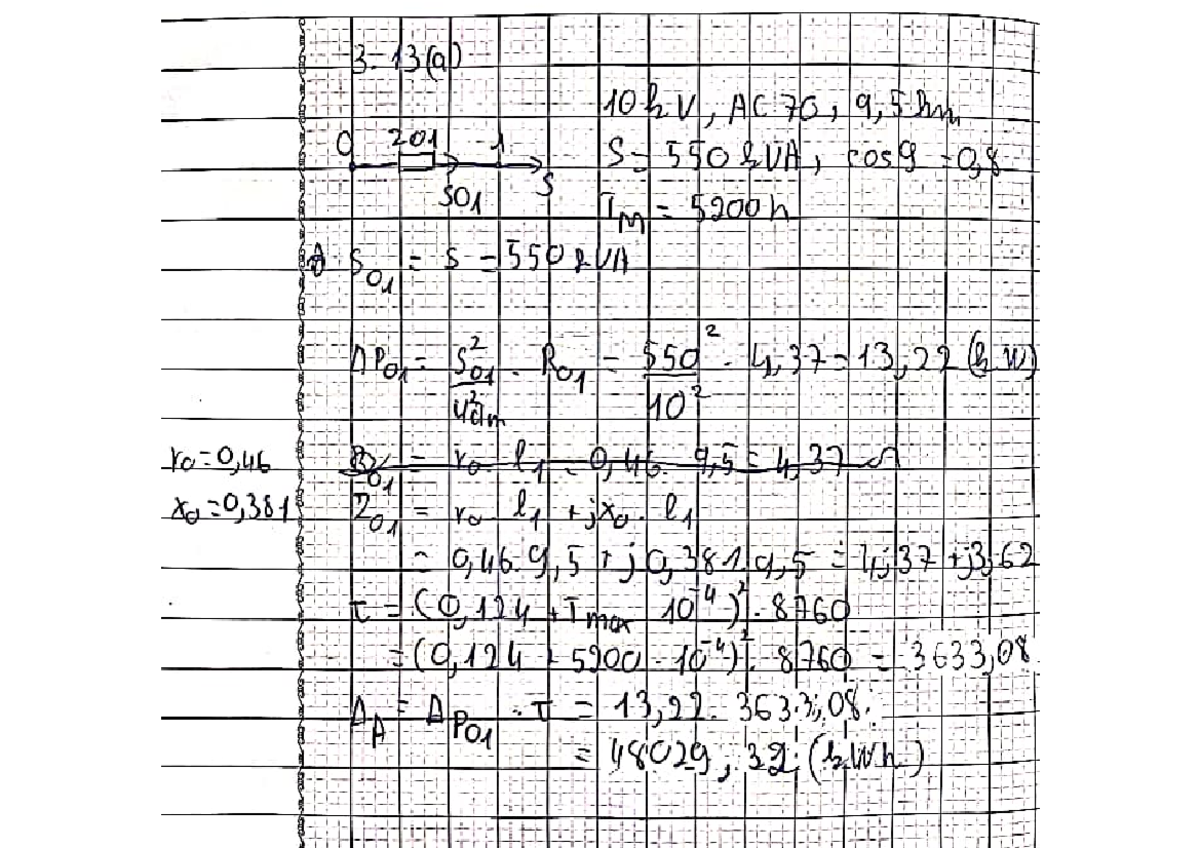 3-13(a)
10kV, AC 70, 9,5 km
0 Z01 1
S = 550 kVA, cosφ = 0,8
S01 S
TM = 5200 h
S01 = S = 550 kVA
ΔP01 = S01² / U²đm . R01 = 550² / 10² . 4,37 = 13,22 (kW)
r0 = 0,46
R01 = r0 . l1 = 0,46 . 9,5 = 4,37 Ω
x0 = 0,381
Z01 = r0 . l1 + jx0 . l1
= 0,46.9,5 + j0,381.9,5 = 4,37 + j3,62
τ = (0,124 + Tmax . 10⁻⁴)² . 8760
= (0,124 + 5200 . 10⁻⁴)² . 8760 = 3633,08
ΔA = ΔP01 . τ = 13,22 . 3633,08
= 48029,32 (kWh)